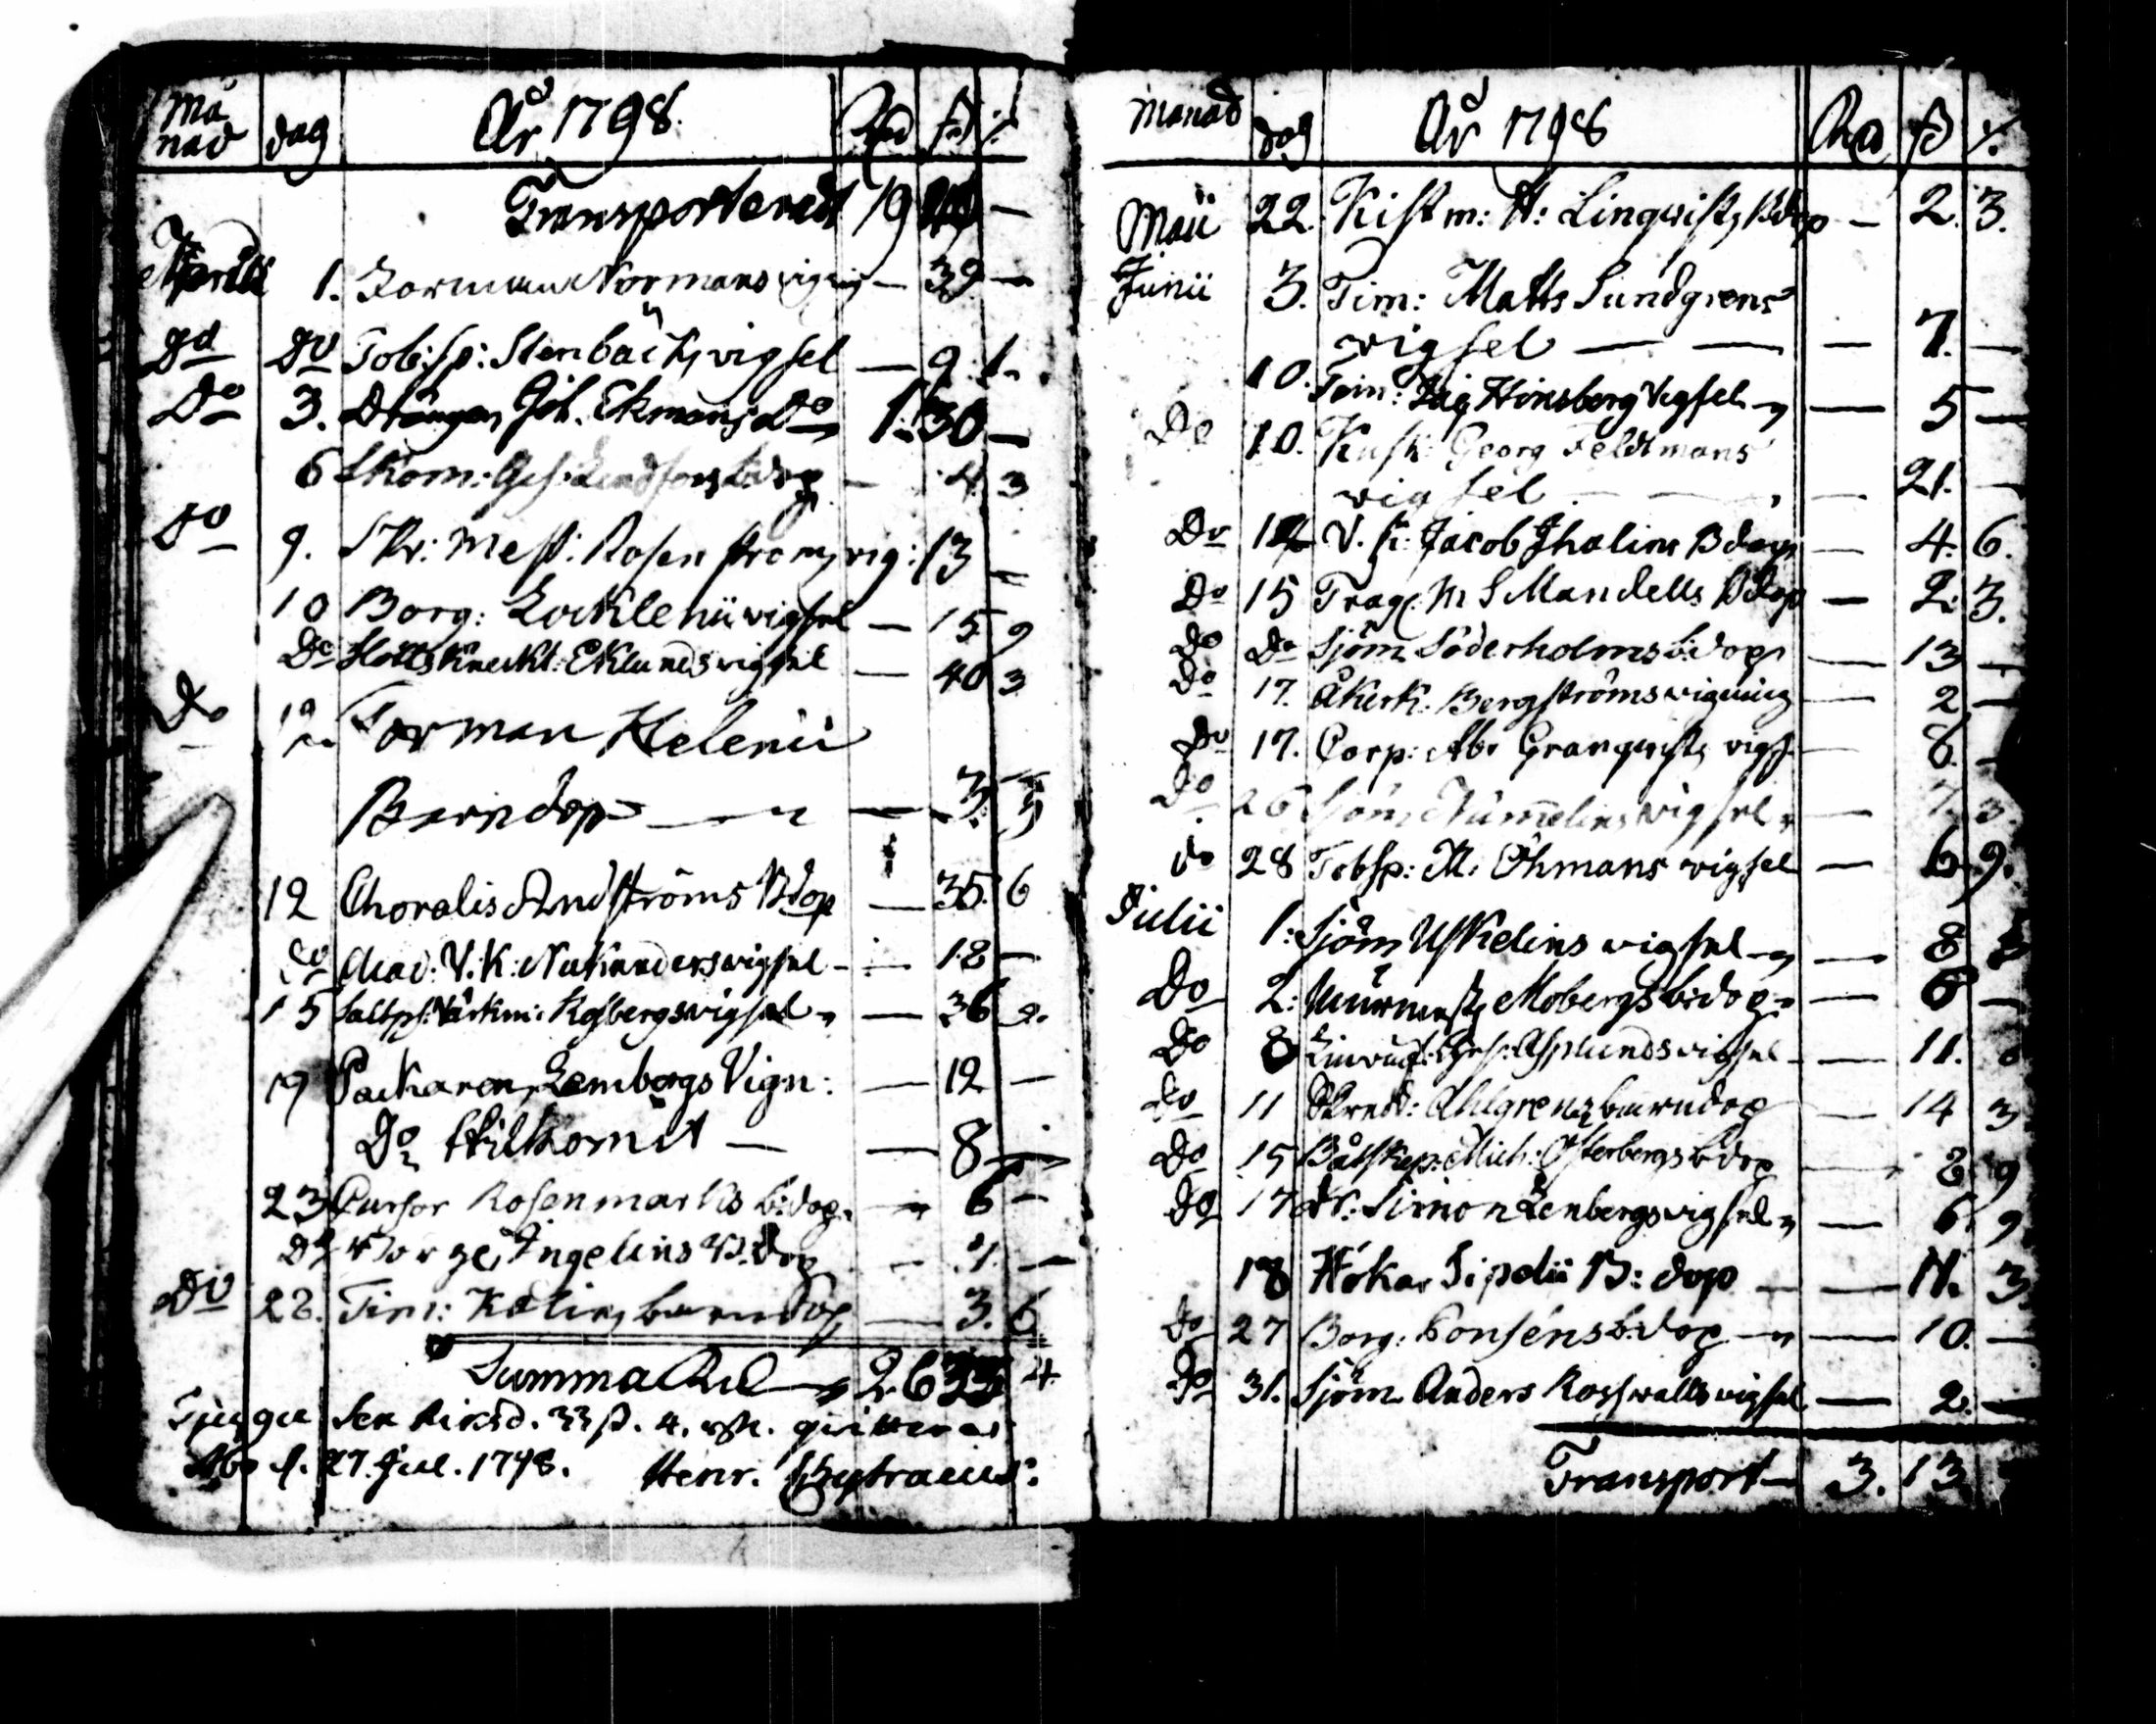 Må
nad dag År 1798. Rd ß
Transporterat 19
Aprill 1. Normans vigning — 39 —
Do Do Tob: sp: Stenbäcks vigsel — 9. 1.
Do 3. Drängen Joh. Ekmans Do 1. 30 —
6 Skom: Ges: Lindfors b:dop — 4 3
Do 9. Mest: Rosenströms vig: 13 —
10 Borg: vigsel — 15. 9
Do Slottsknekt: Eklunds vigsel — 40 3
Do 12 Forman Helenii
Barndop — — 3.
12 Choralis Lindströms B:dop — 35. 6
Do Acad: V.K: Nukanders vigsel — 18 —
15 Saltp: vigsel — 36 9.
19 Packaren Lembergs Vign: — 12 —
Do — — 8 —
23 Cursor Rosenmarks b:dop — 6 —
Do Ingelins B:dop —
Do 28. Tim: Kelins barndop — 3. 6
Summa Rd 26 33 4
Tjugu Sex Riksd. 33 ß. 4. rst. qvitteras
Åbo d. 27. Jul. 1798. Henr.
Månad dag År 1798 Rd ß
Maii 22. Kistm: H: Linqvists B:dop — 2. 3.
Junii 3. Tim: Matts Sundgrens
vigsel — — — 7. —
10. Tim: Hinsberg Vigsel — 5 —
Do 10. Kusk: Georg Feldtmans
vigsel — — 21. —
Do 14 V. k: Jacob Thalins B:dop — 4. 6.
Do 15 Trag: M S Mandells B:dop — 2. 3.
Do Do Sjöm Söderholms b:dop — 13 —
Do 17. Åkerk: Bergströms vigning — 2 —
Do 17. Corp: Abr Granqvists vigs — 8. —
Do 26 Sjöm Nummelins vigsel — 7. 3.
do 28 Tobsp: M: Öhmans vigsel — 6. 9.
Julii 1: Sjöm Uskelins vigsel — 8
Do 2: Murmest Mobergs b:dop — 6 —
Do 8 Ges: Asplunds vigsel — 11.
Do 11 Skredd: Ahlgrens barndop — 14 3
Do 15 Båtskep: Mich: Österbergs b:dop — 2 9
Do 17 Dr: Simon Lenbergs vigsel — 6. 9
18 Hökar Sipelii B: dop — 3.
Do 27 Borg: Bonséns b:dop — 10. —
Do 31. Sjöm Anders Rosswalls vigsel — 2. —
Transport — 3. 13